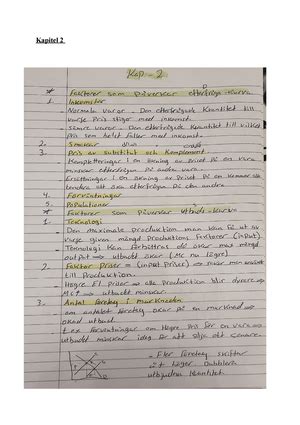 Kapitel 2
Kap - 2
* Faktorer som påverkar efterfråge-kurva
1. Inkomster
- Normala varor. Den efterfrågade kvantitet till
varje Pris stiger med inkomst.
- Sämre varor. Den efterfrågade kvantitet till vilket
Pris som helst faller med inkomst.
2. Smakar
3. Pris av substitut och Komplement
- Kompletteringar : en ökning av Priset på en vara
minskar efterfrågan på andra vara.
- Ersättningar : en ökning av Priset på en kommer att
tendera att öka efterfrågan på den andra
4. Förväntningar
5. Populationer
* Faktorer som påverkar utbuds-kurvan
1. Teknologi
- Den maximala produktion man kan få ut av
varje given mängd Produktions Faktorer (input).
- Teknologi kan förbättras då ökar max mängd
output => utbudet ökar (MC nu lägre)
2. Faktor Priser = (input Priser) =>
till Produktion.
Högre El priser => alla Produktion blir dyrare =>
MC ↑ => utbudet minskar.
3. Antal företag i marknaden
om antalet företag ökar på en marknad =>
ökad utbud
t ex förväntningar om Högre Pris för en vara =>
utbudet minskar idag för att sälja ut senare
- Fler företag skiftar
ut
utbjuden kvantitet.